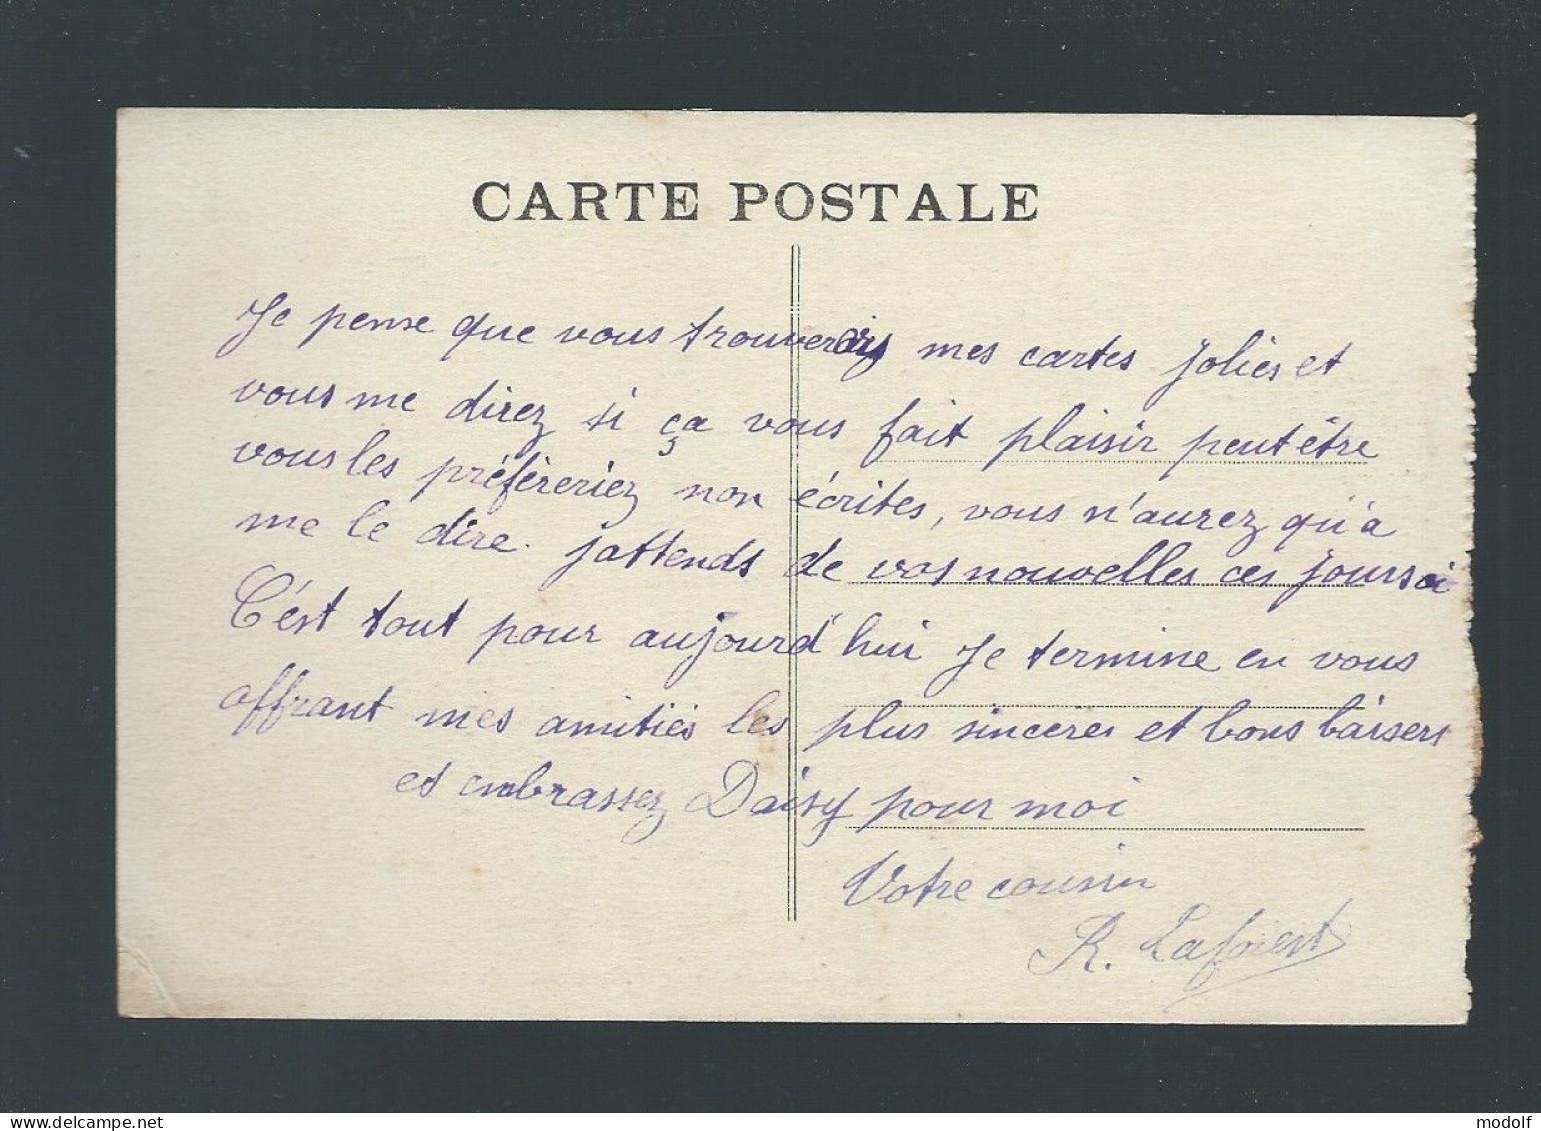 CARTE POSTALE
Je pense que vous trouverais mes cartes jolies et
vous me direz si ça vous fait plaisir peut être
vous les préfèreriez non écrites, vous n'aurez qu'à
me le dire. j'attends de vos nouvelles ces jours ci
C'est tout pour aujourd'hui Je termine en vous
offrant mes amitiés les plus sincères et bons baisers
et embrassez Daisy pour moi
Votre cousin
R. Laforest
www.delcampe.net
modolf